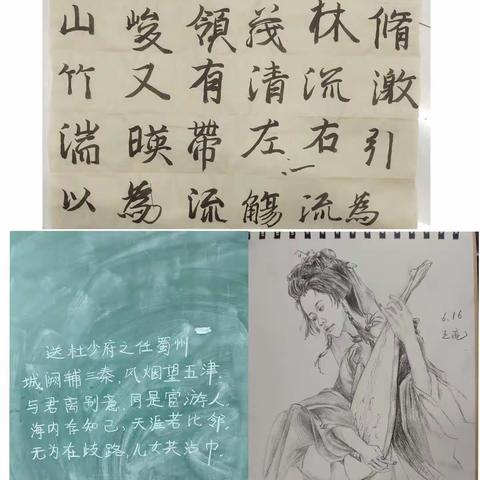 山峻領茂林脩
竹又有清流激
湍暎帶左右引
以為流觴流為
送杜少府之任蜀州
城阙辅三秦，风烟望五津。
与君离别意，同是宦游人。
海内存知己，天涯若比邻。
无为在歧路，儿女共沾巾。
6.16